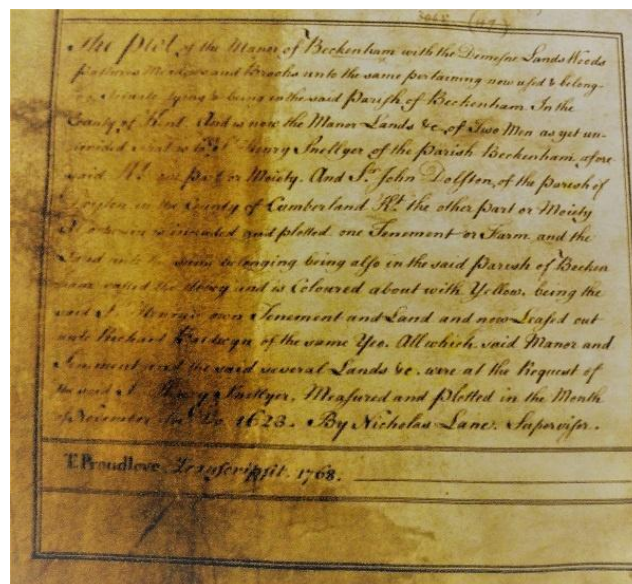 3095 (49)
The Plot of the Manor of Beckenham with the Demesne Lands Woods
Pastures Meadows and Brooks unto the same pertaining now used & belong-
ing Scituate lying & being in the said Parish of Beckenham. In the
County of Kent. And is now the Manor Lands &c of Two Men as yet un-
devided that is to Sr. Henry Snellyer of the Parish Beckenham afore
said Kt. one Part or Moiety. And Sr. John Dolston, of the Parish of
in the County of Cumberland Kt. the other Part or Moiety
is included and plotted one Tenement or Farm and the
Land unto the same belonging being also in the said Parish of Becken
ham called the and is Coloured about with Yellow. being the
said Sr. Henrys own Tenement and Land and now Leased out
unto Richard of the same Yeo. All which said Manor and
Tenement and the said several Lands &c. were at the Request of
the said Sr. Henry Snellyer. Measured and Plotted in the Month
of November 1623. By Nicholas Lane. Supervisor.
T. Proudlove, Transcripsit. 1768.